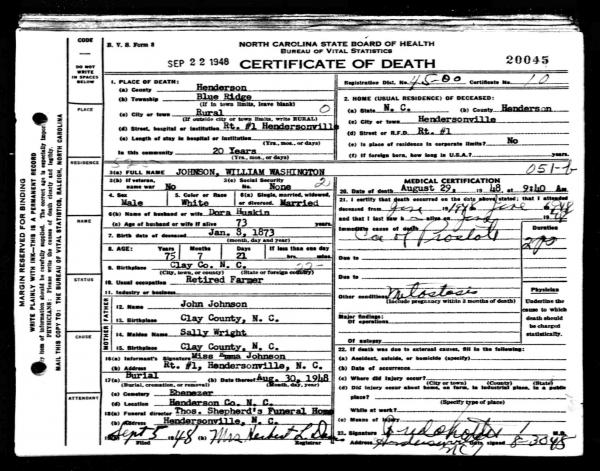 CODE
DO NOT
WRITE
IN SPACES
BELOW
PLACE
RESIDENCE
NAME
STATUS
CAUSE
ATTENDANT
MARGIN RESERVED FOR BINDING
WRITE PLAINLY WITH INK—THIS IS A PERMANENT RECORD
MAIL THIS COPY TO: THE BUREAU OF VITAL STATISTICS, RALEIGH, NORTH CAROLINA
B. V. S. Form 8
SEP 22 1948
NORTH CAROLINA STATE BOARD OF HEALTH
BUREAU OF VITAL STATISTICS
CERTIFICATE OF DEATH
20045
Registration Dist. No. 45-00 Certificate No. 10
1. PLACE OF DEATH:
(a) County Henderson
(b) Township Blue Ridge
(If in town limits, leave blank)
(c) City or town Rural 0
(If outside city or town limits, write RURAL)
(d) Street, hospital or institution Rt. #1 Hendersonville
(e) Length of stay in hospital or institution
(Yrs., mos., or days)
In this community 20 Years
(Yrs., mos., or days)
2. HOME (USUAL RESIDENCE) OF DECEASED:
(a) State N. C. (b) County Henderson
(c) City or town Hendersonville
(d) Street or R.F.D. Rt. #1
(e) Is place of residence in corporate limits? No
(f) If foreign born, how long in U.S.A.? years.
3(a) FULL NAME JOHNSON, WILLIAM WASHINGTON
3(b) If veteran, name war No
3(c) Social Security No. None
4. Sex Male
5. Color or Race White
6(a) Single, married, widowed, or divorced. Married
6(b) Name of husband or wife Dora Huskin
6(c) Age of husband or wife if alive 73 years
7. Birth date of deceased Jan. 8, 1873
(month, day and year)
8. AGE: Years 75 Months 7 Days 21 If less than one day hrs. min.
9. Birthplace Clay Co. N. C.
(City, town, or county) (State or foreign country)
10. Usual occupation Retired Farmer
11. Industry or business
FATHER
12. Name John Johnson
13. Birthplace Clay County, N. C.
MOTHER
14. Maiden Name Sally Wright
15. Birthplace Clay County, N. C.
16(a) Informant's Signature Miss Emma Johnson
(b) Address Rt. #1, Hendersonville, N. C.
17(a) Burial (b) Date thereof Aug. 30, 1948
(Burial, cremation, or removal) (Month, day, year)
(c) Cemetery Ebenezer
(d) Location Henderson Co. N. C.
18(a) Funeral director Thos. Shepherd's Funeral Home
(b) Address Hendersonville, N. C.
19(a) Sept 5 1948 (b) Mrs Herbert L.
Filed Registrar
051-b
MEDICAL CERTIFICATION
20. Date of death August 29, 1948 at 9:40 Am
21. I certify that death occurred on the date above stated; that I attended
deceased from 1946
and that I last saw h alive on
Immediate cause of death
Ca of Prostate
Duration
2 yrs
Due to
Due to
Other conditions Metastasis
(Include pregnancy within 3 months of death)
Major findings:
Of operations
Of autopsy
Physician
Underline the
cause to which
death should
be charged
statistically.
22. If death was due to external causes, fill in the following:
(a) Accident, suicide, or homicide (specify)
(b) Date of occurrence
(c) Where did injury occur?
(City or town) (County) (State)
(d) Did injury occur about home, on farm, in industrial place, in a public
place?
(Specify type of place)
While at work?
(e) Means of injury
23. Signature M.D.
Address Date signed 8-30-48